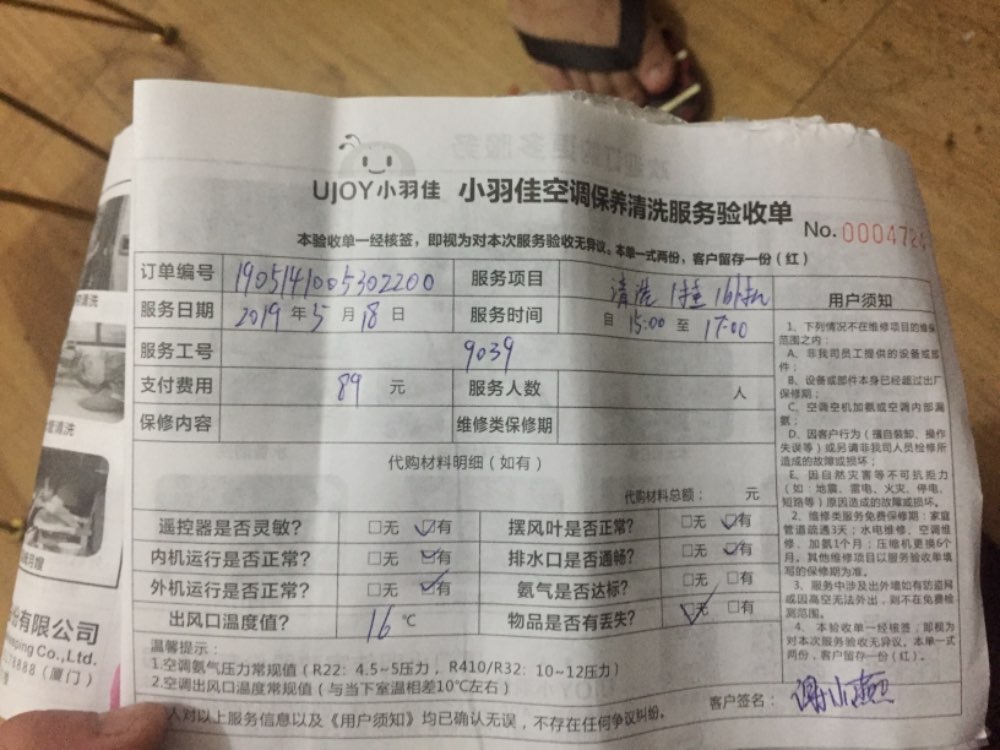 欢迎订购更多服务
UJOY小羽佳 小羽佳空调保养清洗服务验收单
No. 000472
本验收单一经核签，即视为对本次服务验收无异议。本单一式两份，客户留存一份（红）
订单编号 1905141005302200 服务项目 清洗 1挂
服务日期 2019 年 5 月 18 日 服务时间 自 15:00 至 17:00
服务工号 9039
支付费用 89 元 服务人数 人
保修内容 维修类保修期
代购材料明细（如有）
代购材料总额： 元
遥控器是否灵敏? □无 □有 摆风叶是否正常? □无 □有
内机运行是否正常? □无 □有 排水口是否通畅? □无 □有
外机运行是否正常? □无 □有 氨气是否达标? □无 □有
出风口温度值? 16 ℃ 物品是否有丢失? □无 □有
温馨提示：
1.空调氨气压力常规值（R22: 4.5~5压力，R410/R32: 10~12压力）
2.空调出风口温度常规值（与当下室温相差10℃左右）
人对以上服务信息以及《用户须知》均已确认无误，不存在任何争议纠纷。
客户签名：
用户须知
1、下列情况不在维修项目的维保
范围之内：
A、非我司员工提供的设备或部
件；
B、设备或部件本身已经超过出厂
保修期；
C、空调空机加氨或空调内部漏
氨；
D、因客户行为（擅自装卸、操作
失误等）或另请非我司人员检修所
造成的故障或损坏；
E、因自然灾害等不可抗拒力
（如：地震、雷电、火灾、停电、
短路等）原因造成的故障或损坏。
2、维修类服务免费保修期：家庭
管道疏通3天；水电维修、空调维
修、加氨1个月；压缩机更换6个
月。其他维修项目以服务验收单填
写的保修期为准。
3、服务中涉及出外墙如有防盗网
或因高空无法外出，则不在免费检
测范围。
4、本验收单一经核签，即视为
对本次服务验收无异议。本单一式
两份，客户留存一份（红）。
清洗
清洗
有限公司
ping Co.,Ltd.
8888（厦门）